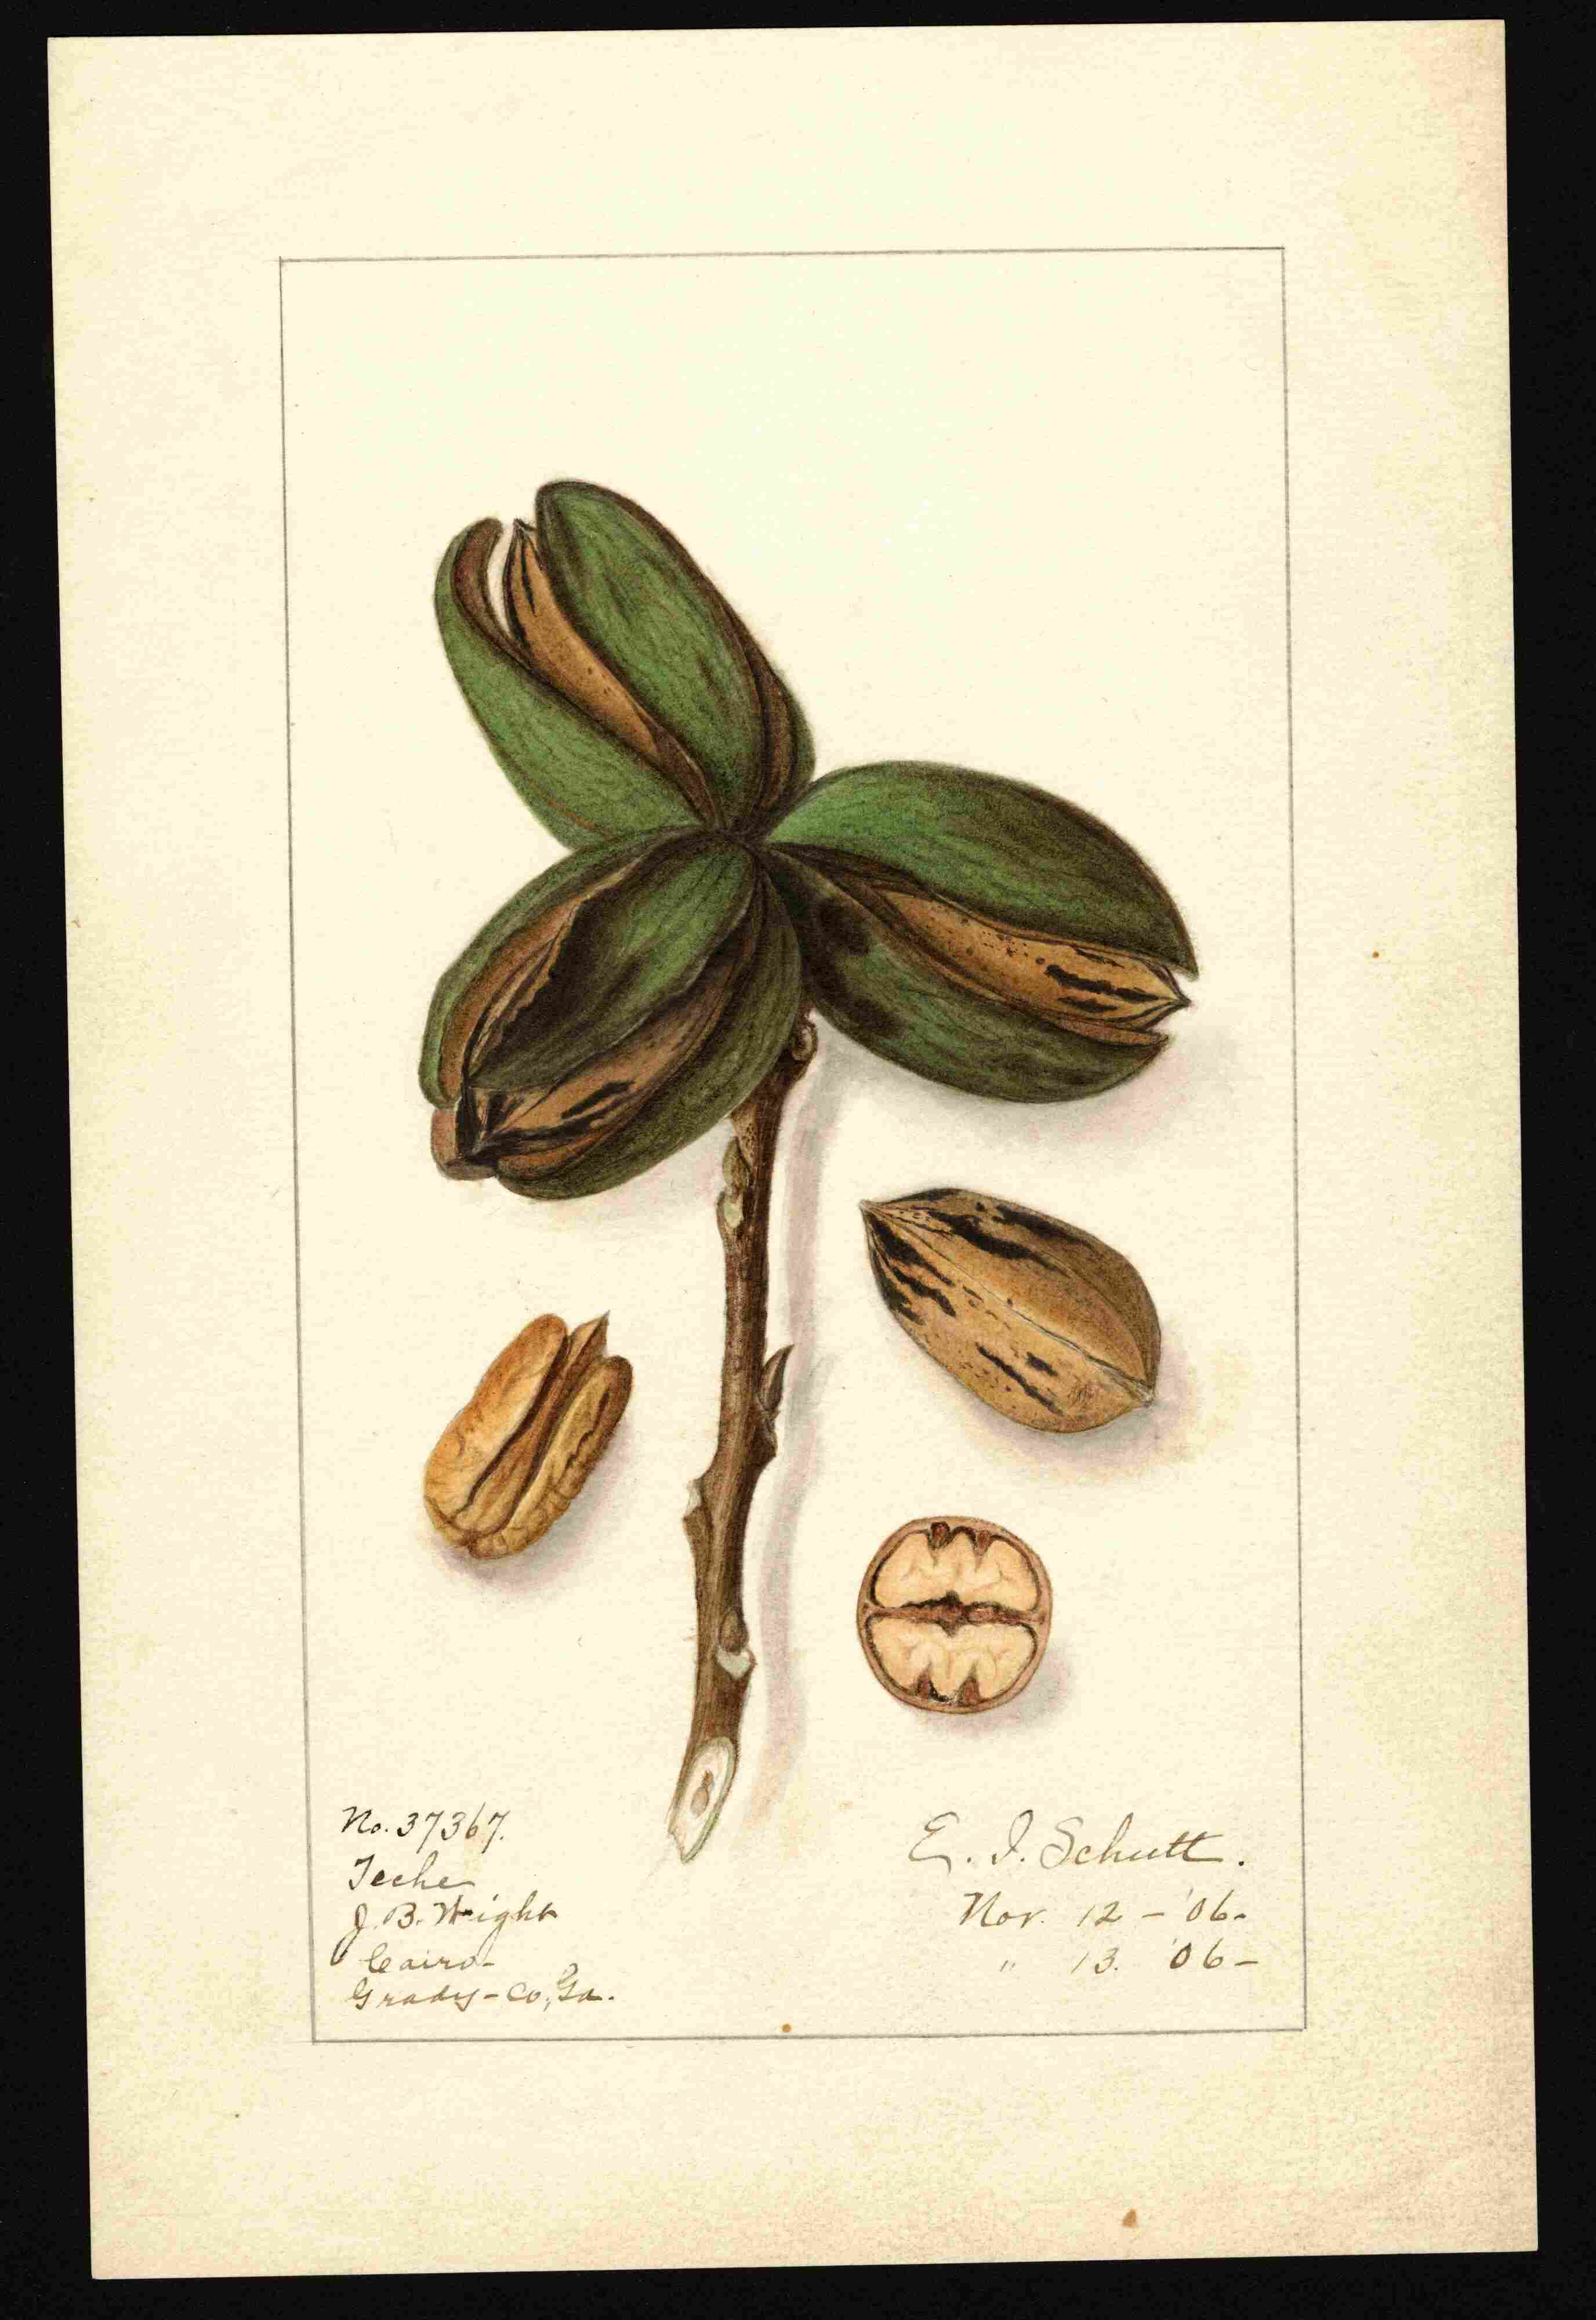 No. 37367.
Teche
J. B. Wight
Cairo-
Grady-Co., Ga.
E. I. Schutt.
Nov. 12 - '06-
" 13. '06-